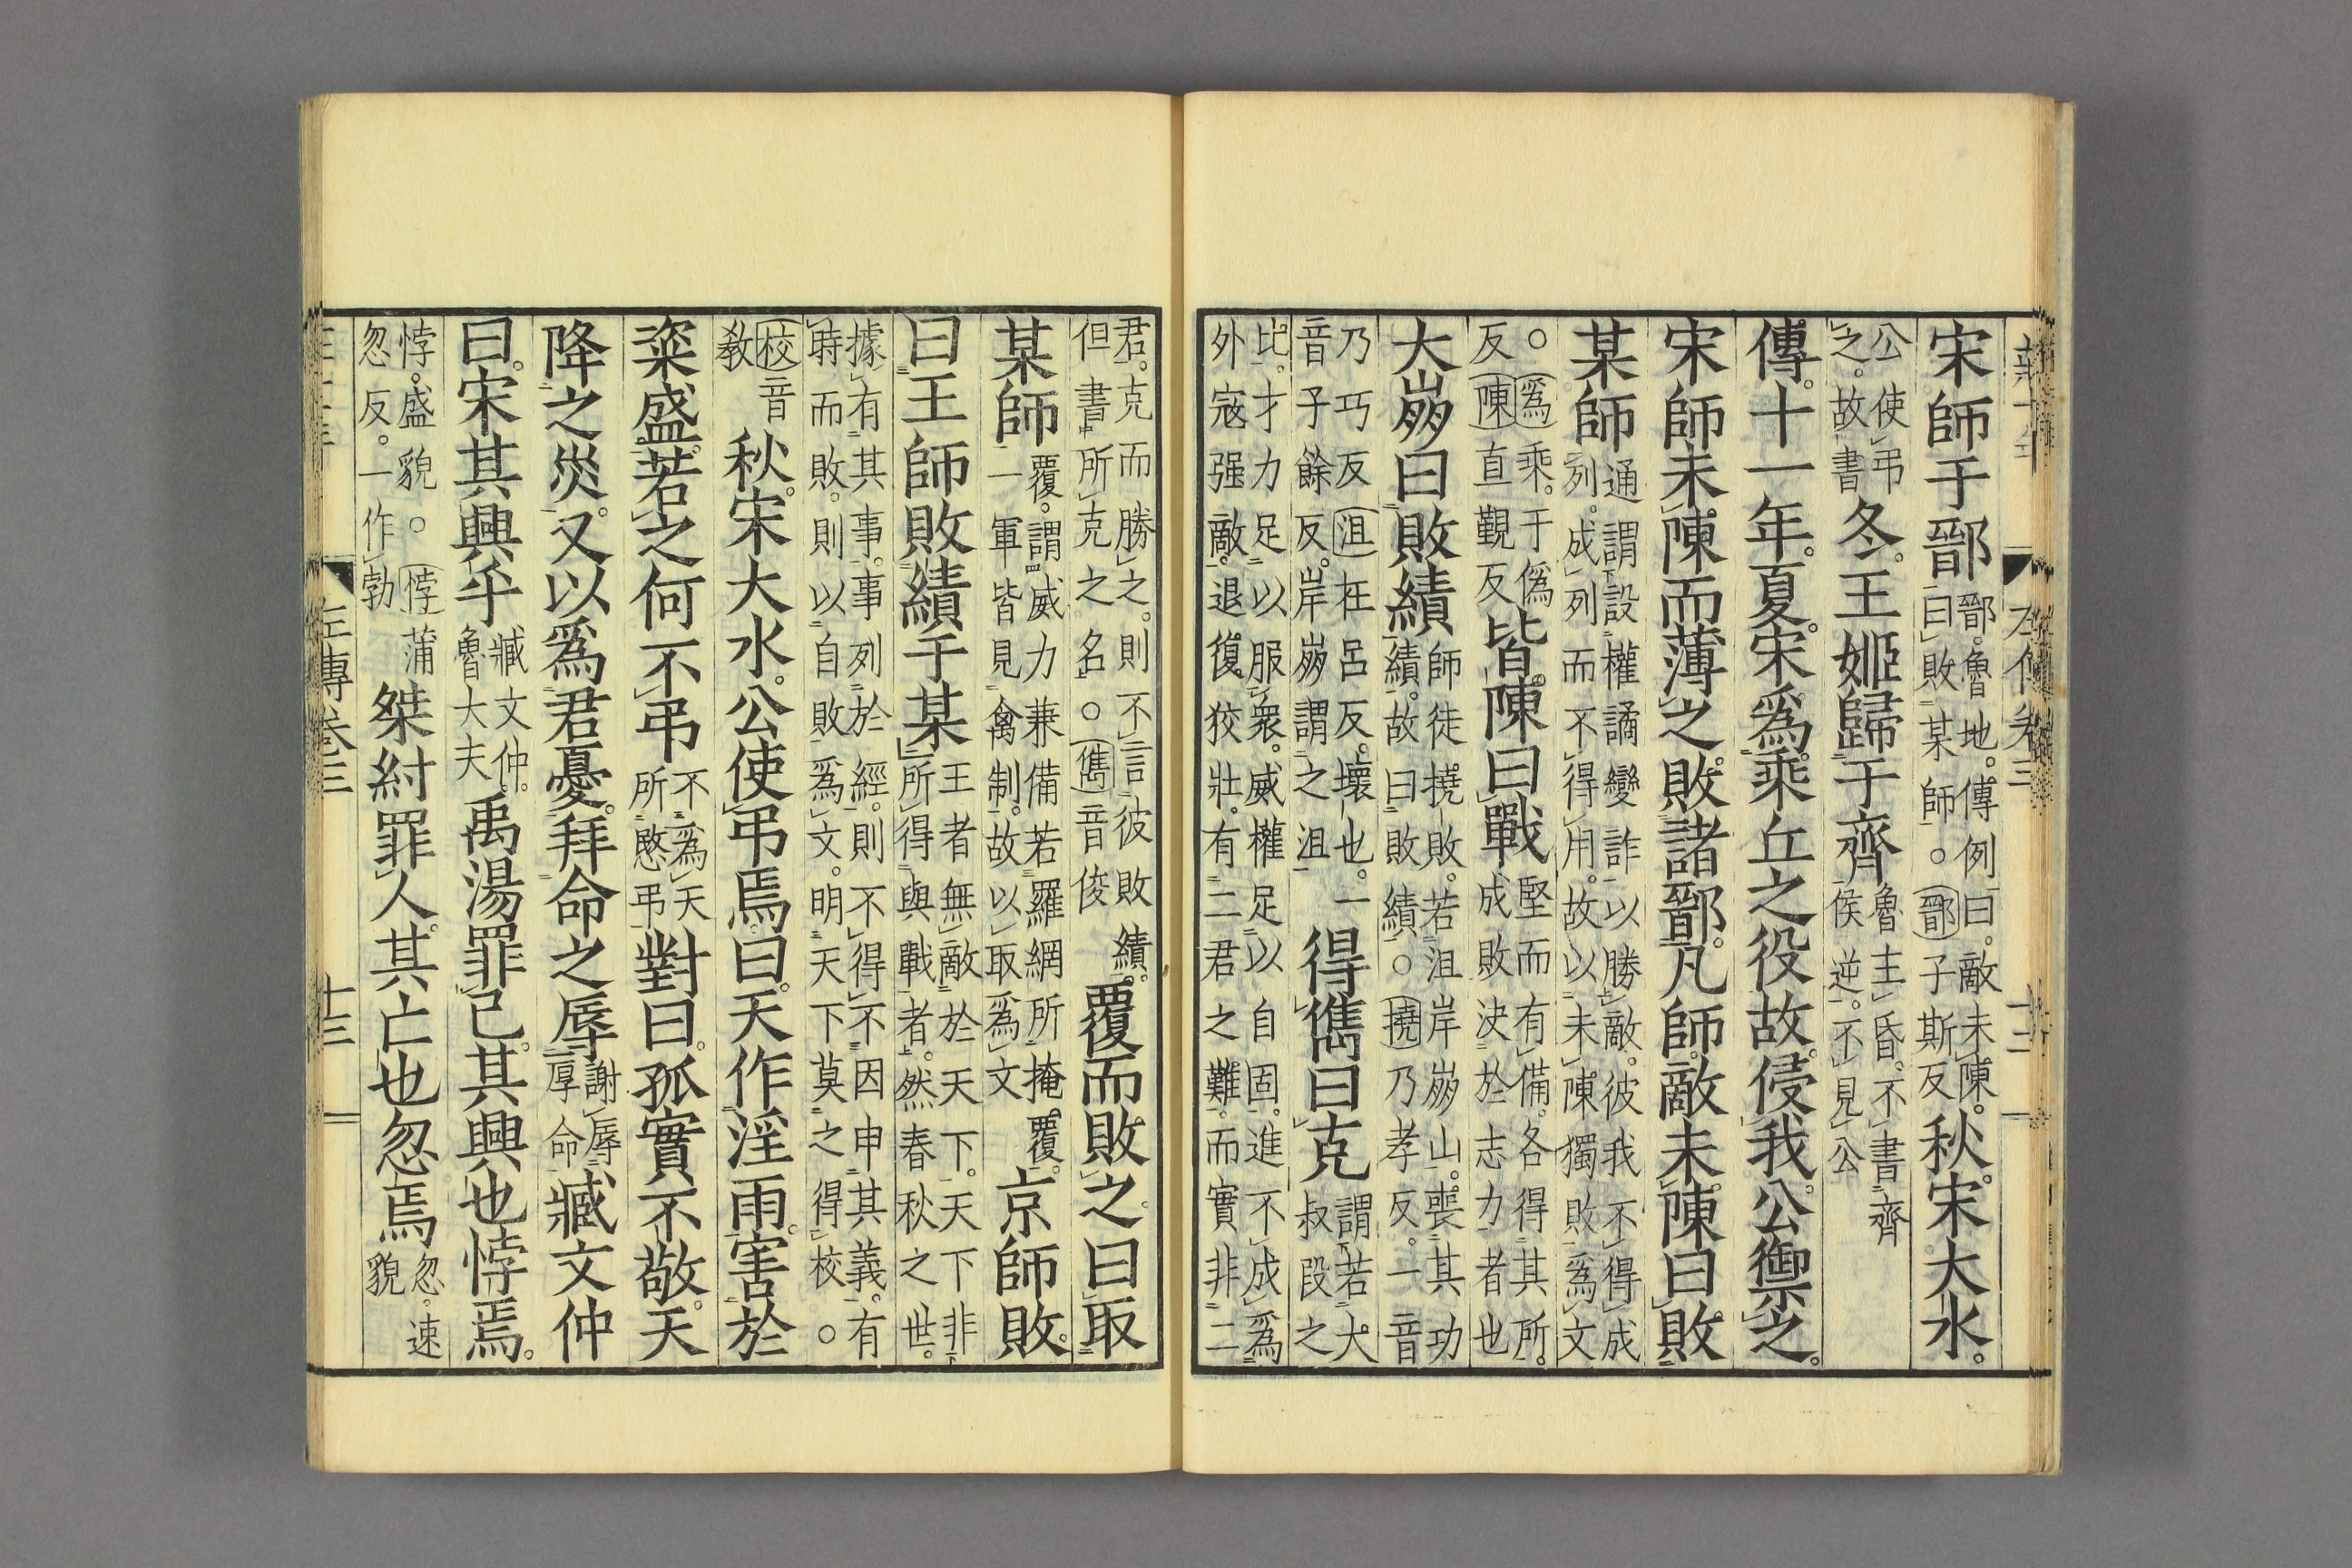 宋師于鄑鄑。魯地。傳例曰。敵未陳。曰敗某師。○鄑子斯反秋。宋大水。
公使弔之。故書冬。王姬歸于齊魯主昏。不書齊侯逆。不見公
傳。十一年。夏。宋爲乘丘之役故。侵我。公禦之。
宋師未陳而薄之。敗諸鄑。凡師。敵未陳曰敗
某師通謂設權譎變詐以勝敵。彼我不得成列。成列而不得用。故以未陳獨敗爲文
○爲乘。于僞反陳直覲反皆陳曰戰堅而有備。各得其所。成敗決於志力者也
大崩曰敗績師徒撓敗。若沮岸崩山。喪其功績。故曰敗績○撓乃孝反。一音
乃巧反沮在呂反。壞也。一音子餘反。岸崩謂之沮得儁曰克謂若大叔段之
比。才力足以服衆。威權足以自固。進不成爲外寇强敵。退復狡壯。有二君之難。而實非二
君。克而勝之。則不言彼敗績。但書所克之名。○儁音俊覆而敗之。曰取
某師覆。謂威力兼備若羅網所掩覆。一軍皆見禽制。故以取爲文京師敗。
曰王師敗績于某王者無敵於天下。天下非所得與戰者。然春秋之世。
據有其事。事列於經。則不得不因申其義。有時而敗。則以自敗爲文。明天下莫之得校。○
校音教秋。宋大水。公使弔焉。曰。天作淫雨。害於
粢盛。若之何不弔不爲天所愍弔對曰。孤實不敬。天
降之災。又以爲君憂。拜命之辱謝辱厚命臧文仲
曰。宋其興乎臧文仲。魯大夫禹湯罪己。其興也悖焉。
悖。盛貌。○悖蒲忽反。一作勃桀紂罪人。其亡也忽焉忽。速貌
左傳卷三
十三